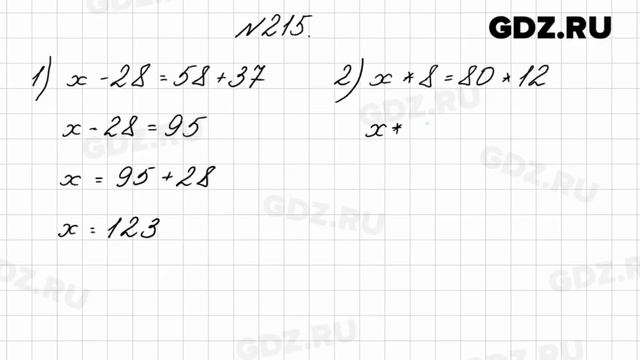 №215.
GDZ.RU
1) x - 28 = 58 + 37
x - 28 = 95
x = 95 + 28
x = 123
2) x * 8 = 80 * 12
x *
GDZ.RU
GDZ.RU
GDZ.RU
GDZ.RU
GDZ.RU
GDZ.RU
GDZ.RU